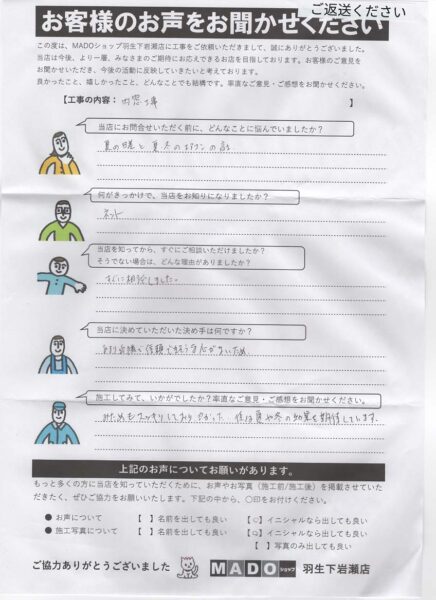 ご返送ください
お客様のお声をお聞かせください
この度は、MADOショップ羽生下岩瀬店に工事をご依頼いただきまして、誠にありがとうございました。
当店は今後、より一層、みなさまのご期待にお応えできるお店を目指しております。お客様のご意見を
お聞かせいただき、今後の活動に反映していきたいと考えております。
良かったこと、嬉しかったこと、どんなことでも結構です。率直なご意見・ご感想をお聞かせください。
【工事の内容：内窓工事 】
当店にお問合せいただく前に、どんなことに悩んでいましたか？
夏の暑さと夏冬のエアコンの
何がきっかけで、当店をお知りになりましたか？
ネット
当店を知ってから、すぐにご相談いただけましたか？
そうでない場合は、どんな理由がありましたか？
すぐに相談しました。
当店に決めていただいた決め手は何ですか？
施工してみて、いかがでしたか？率直なご意見・ご感想をお聞かせください。
みためもスッキリしており よかった。後は夏や冬の効果を期待しています。
上記のお声についてお願いがあります。
もっと多くの方に当店を知っていただくために、お声やお写真（施工前/施工後）を掲載させていた
だきたく、ぜひご協力をお願いいたします。下記の中から、〇印をお付けください。
● お声について 【 】名前を出しても良い 【○】イニシャルなら出しても良い
● 施工写真について 【 】名前を出しても良い 【○】イニシャルなら出しても良い
【 】写真のみ出しても良い
ご協力ありがとうございました MADOショップ 羽生下岩瀬店